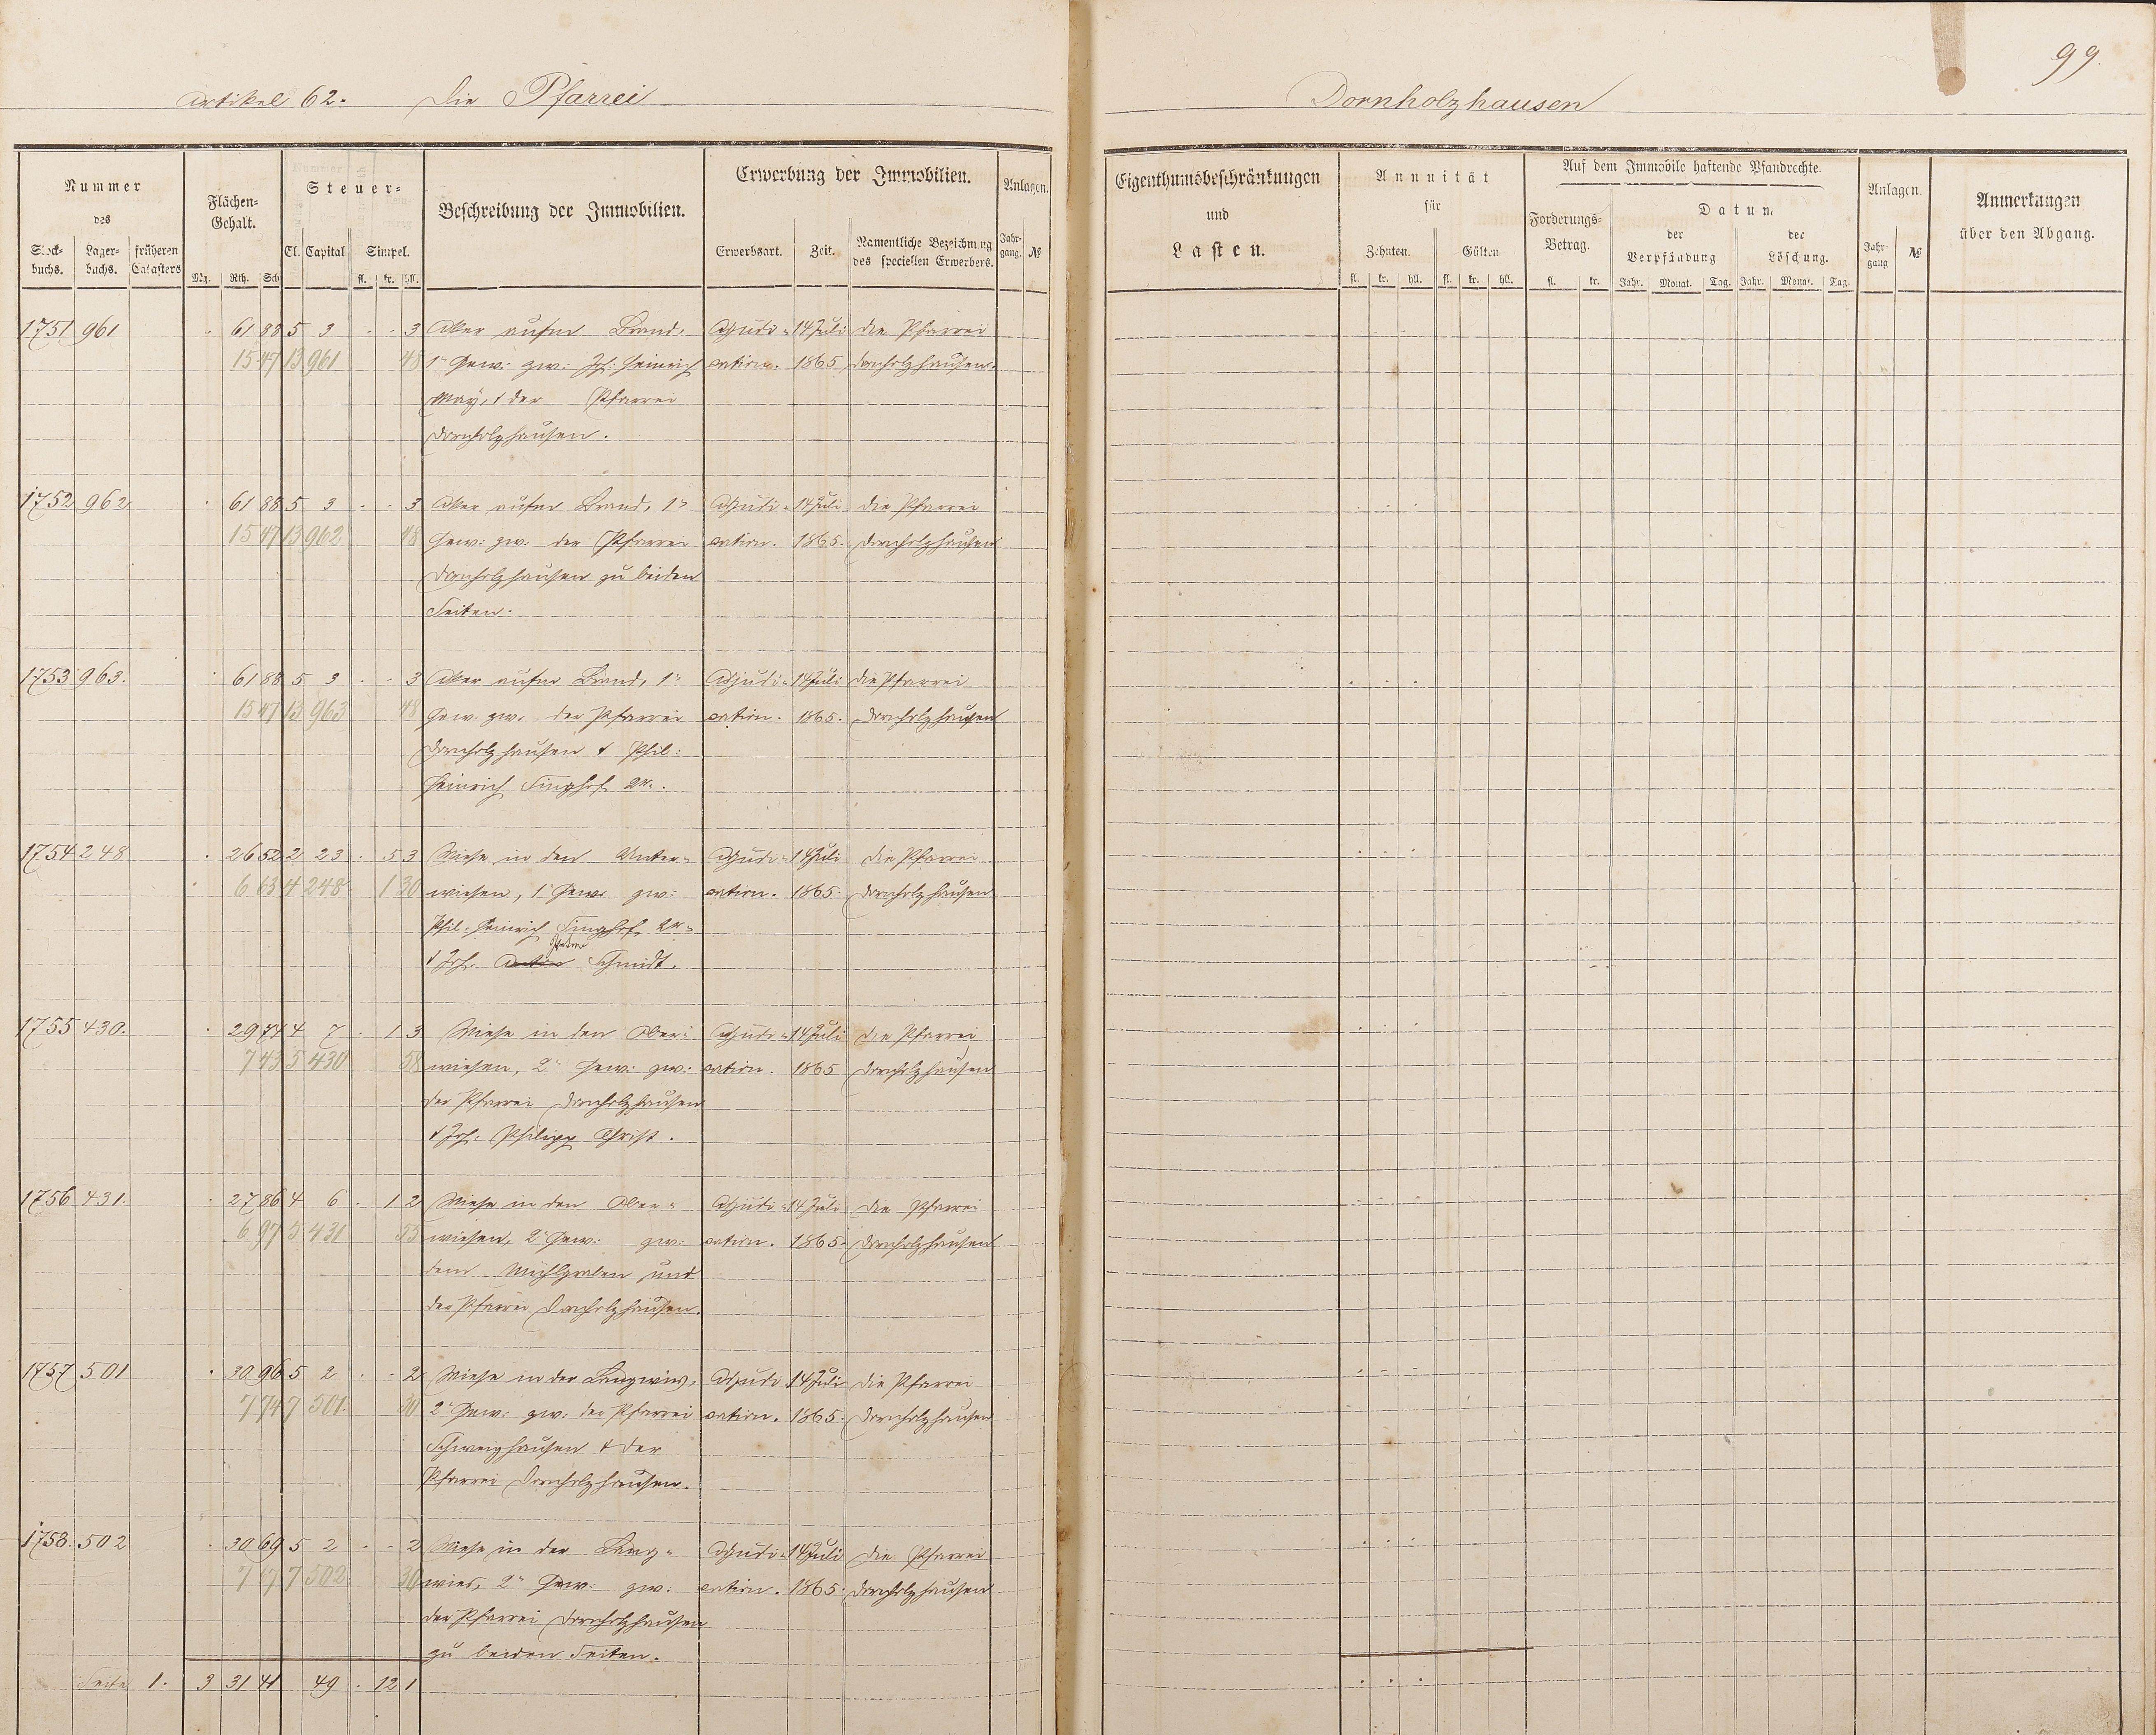 99.
Artikel 62. Die Pfarrei Dornholzhausen
Nummer des
Stockbuchs. Lagerbuchs. früheren Catasters
Flächen-Gehalt.
Mg. Rth. Sch.
Steuer-
Cl. Capital Simpel.
fl. kr. hll.
Beschreibung der Immobilien.
Erwerbung der Immobilien.
Erwerbsart. Zeit. Namentliche Bezeichnung des speciellen Erwerbers.
Anlagen.
Jahrgang. №
Eigenthumsbeschränkungen und Lasten.
Annuität für
Zehnten. Gülten
fl. kr. hll. fl. kr. hll.
Auf dem Immobile haftende Pfandrechte.
Forderungs-Betrag.
fl. kr.
Datum
der Verpfändung der Löschung.
Jahr. Monat. Tag. Jahr. Monat. Tag.
Anlagen.
Jahrgang №
Anmerkungen über den Abgang.
1751 961 . 61 88 5 3 - - 3 Aker aufm Brand, Adjudi- 14 Juli die Pfarrei
15 47 13 961 48 1r Gew: zw: Joh: Heinrich cation. 1865 Dornholzhausen.
May, & der Pfarrei
Dornholzhausen.
1752 962 . 61 88 5 3 - - 3 Aker aufm Brand, 1r Adjudi- 14 Juli die Pfarrei
15 47 13 962 48 Gew: zw: der Pfarrei cation. 1865. Dornholzhausen
Dornholzhausen zu beiden
Seiten.
1753 963. . 61 88 5 3 - - 3 Aker aufm Brand, 1r Adjudi- 14 Juli die Pfarrei
15 47 13 963 48 Gew. zw. der Pfarrei cation. 1865. Dornholzhausen
Dornholzhausen & Phil:
Heinrich Singhof 2r.
1754 248 . 26 52 2 23 . 5 3 Wiese in den Unter- Adjudi- 14 Juli die Pfarrei
6 63 4 248 1 30 wiesen, 1r Gew: zw: cation. 1865. Dornholzhausen
Phil. Heinrich Singhof 2r
& Joh. Anton Schmidt.
1755 430. . 29 74 4 7 . 1 3 Wiese in den Ober- Adjudi- 14 Juli die Pfarrei
7 43 5 430 58 wiesen, 2r Gew: zw: cation. 1865 Dornholzhausen
der Pfarrei Dornholzhausen
& Joh: Philipp Christ.
1756 431. . 27 86 4 6 . 1 2 Wiese in den Ober- Adjudi- 14 Juli die Pfarrei
6 97 5 431 55 wiesen, 2r Gew: zw: cation. 1865. Dornholzhausen
dem Mühlgraben und
der Pfarrei Dornholzhausen.
1757 501 . 30 96 5 2 . - 2 Wiese in der Langwies, Adjudi- 14 Juli die Pfarrei
7 74 7 501. 30 2r Gew: zw: der Pfarrei cation. 1865. Dornholzhausen
Schweighausen & der
Pfarrei Dornholzhausen.
1758. 502 . 30 69 5 2 - - 2 Wiese in der Lang- Adjudi- 14 Juli die Pfarrei
7 67 7 502 30 wies, 2r Gew: zw: cation. 1865. Dornholzhausen
der Pfarrei Dornholzhausen
zu beiden Seiten.
Seite 1. 3 31 41 49 . 12 1